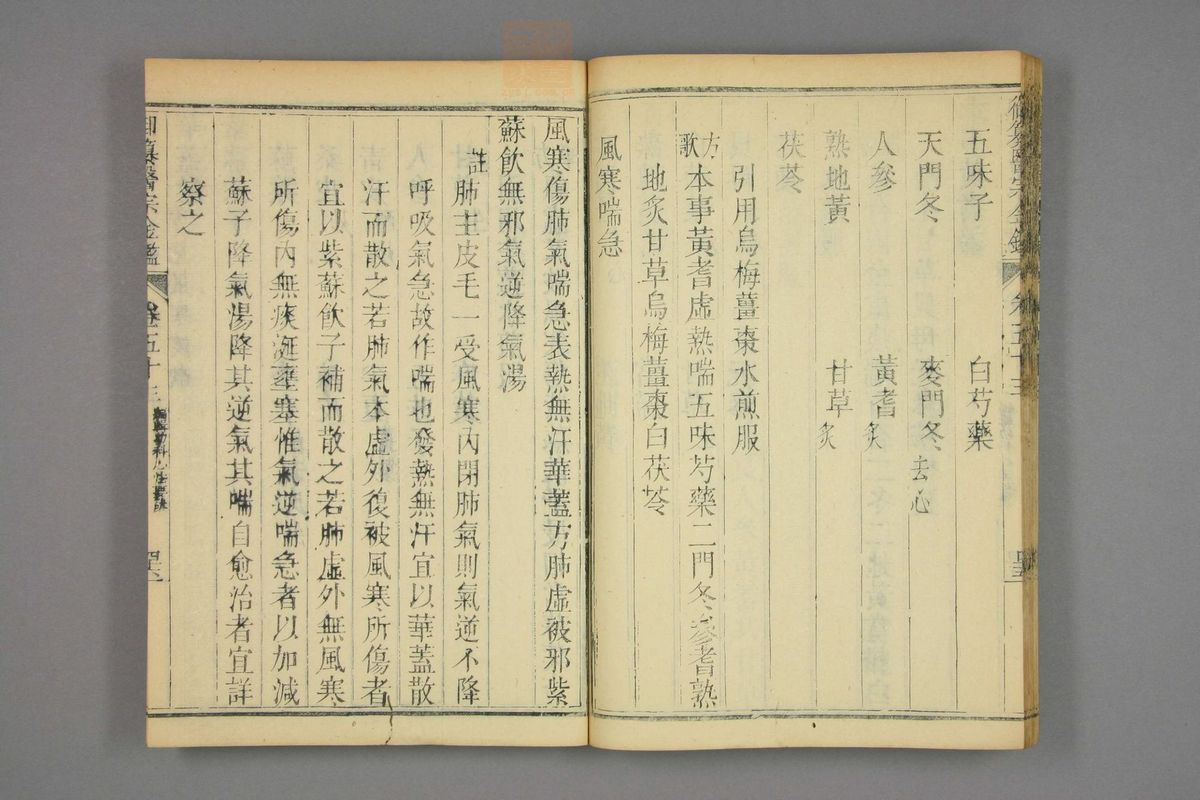 五味子 白芍藥
天門冬 麥門冬去心
人參 黃耆炙
熟地黃 甘草炙
茯苓
引用烏梅薑棗水煎服
方歌本事黃耆虛熱喘五味芍藥二門冬參耆熟
地炙甘草烏梅薑棗白茯苓
風寒喘急
風寒傷肺氣喘急表熱無汗華蓋方肺虛被邪紫
蘇飲無邪氣逆降氣湯
註肺主皮毛一受風寒內閉肺氣則氣逆不降
呼吸氣急故作喘也發熱無汗宜以華蓋散
汗而散之若肺氣本虛外復被風寒所傷者
宜以紫蘇飲子補而散之若肺虛外無風寒
所傷內無痰涎壅塞惟氣逆喘急者以加減
蘇子降氣湯降其逆氣其喘自愈治者宜詳
察之
御纂醫宗金鑑 卷五十三